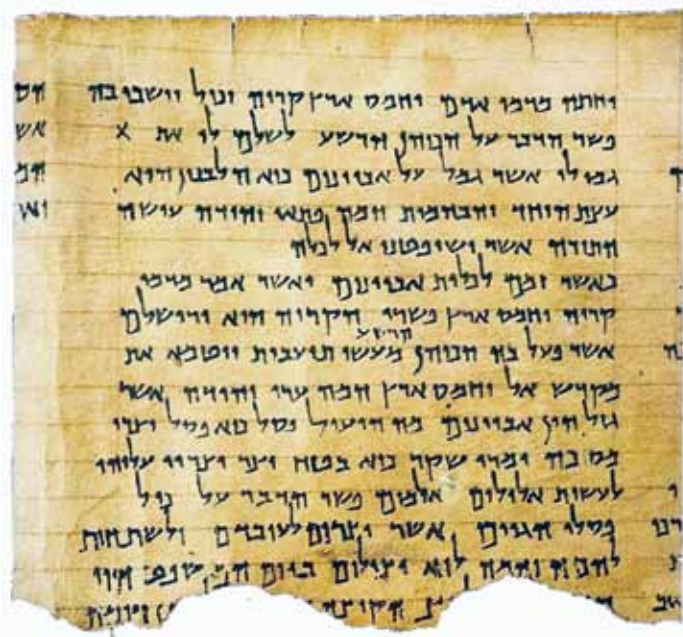 יחתה מדמי אדם וחמס ארץ קריה וכול יושבי בה
פשר הדבר על הכוהן הרשע לשלם לו את X
גמולו אשר גמל על אביונים כיא הלבנון הוא
עצת היחד והבהמות המה פתאי יהודה עושה
התורה אשר ישופטנו אל לכלה
כאשר זמם לכלות אביונים ואשר אמר מדמי
קריה וחמס ארץ פשרו הקריה היא ירושלם
הרשע
אשר פעל בה הכוהן מעשי תועבות ויטמא את
מקדש אל וחמס ארץ המה ערי יהודה אשר
גזל הון אביונים מה הועיל פסל כיא פסל יצרו
מסכה ומרי שקר כיא בטח יצר יצריו עליהו
לעשות אלילים אלמים פשר הדבר על כול
פסלי הגוים אשר יצרום לעובדם ולשתחות
להמה והמה לוא יצילום ביום המשפט הוי
הקיצה דומה